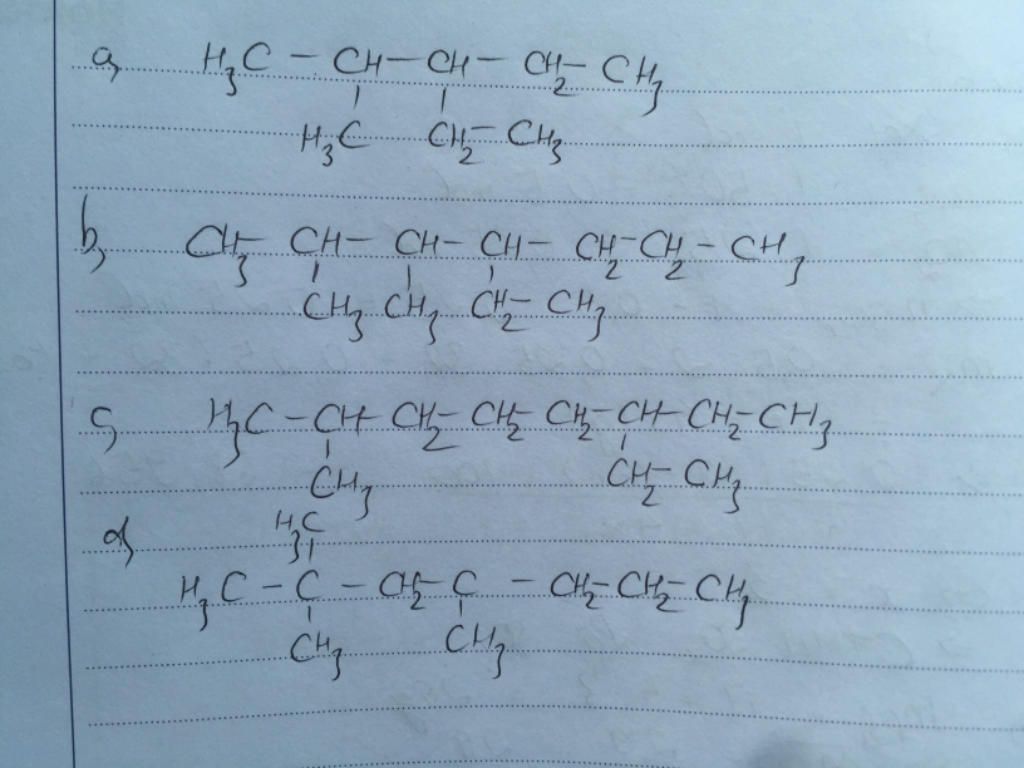 a, H₃C - CH - CH - CH₂ - CH₃
H₃C CH₂ - CH₃
b, CH₃ - CH - CH - CH - CH₂ - CH₂ - CH₃
CH₃ CH₃ CH₂ - CH₃
c, H₃C - CH - CH₂ - CH₂ - CH₂ - CH - CH₂ - CH₃
CH₃ CH₂ - CH₃
d, H₃C
H₃C - C - CH₂ - C - CH₂ - CH₂ - CH₃
CH₃ CH₃